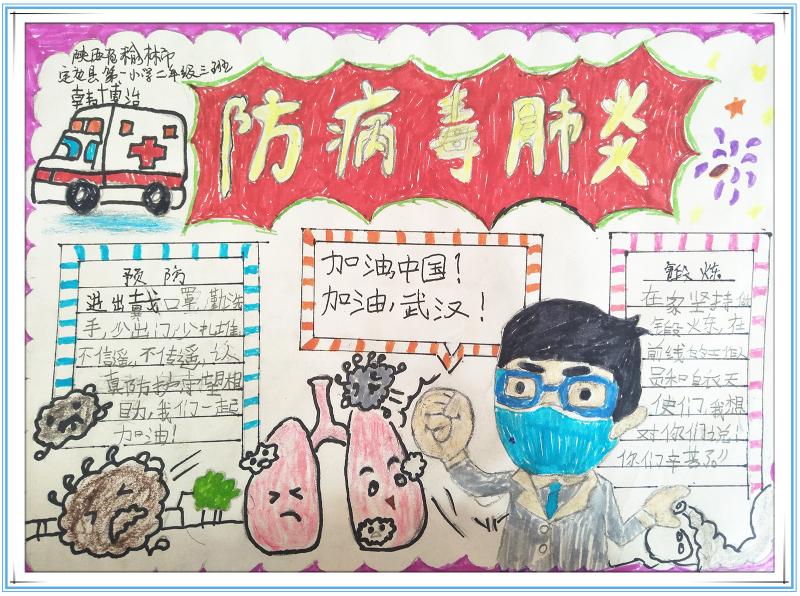 陕西省榆林市
定边县第一小学二年级三班
韩博治
防病毒肺炎
预防
进出戴口罩,勤洗
手,少出门,少扎堆,
不信谣,不传谣,认
真防护守望相
助,我们一起
加油!
加油,中国!
加油,武汉!
锻炼
在家坚持做
锻炼,在
前线的工作人
员和白衣天
使们,我想
对你们说:“
你们辛苦了”